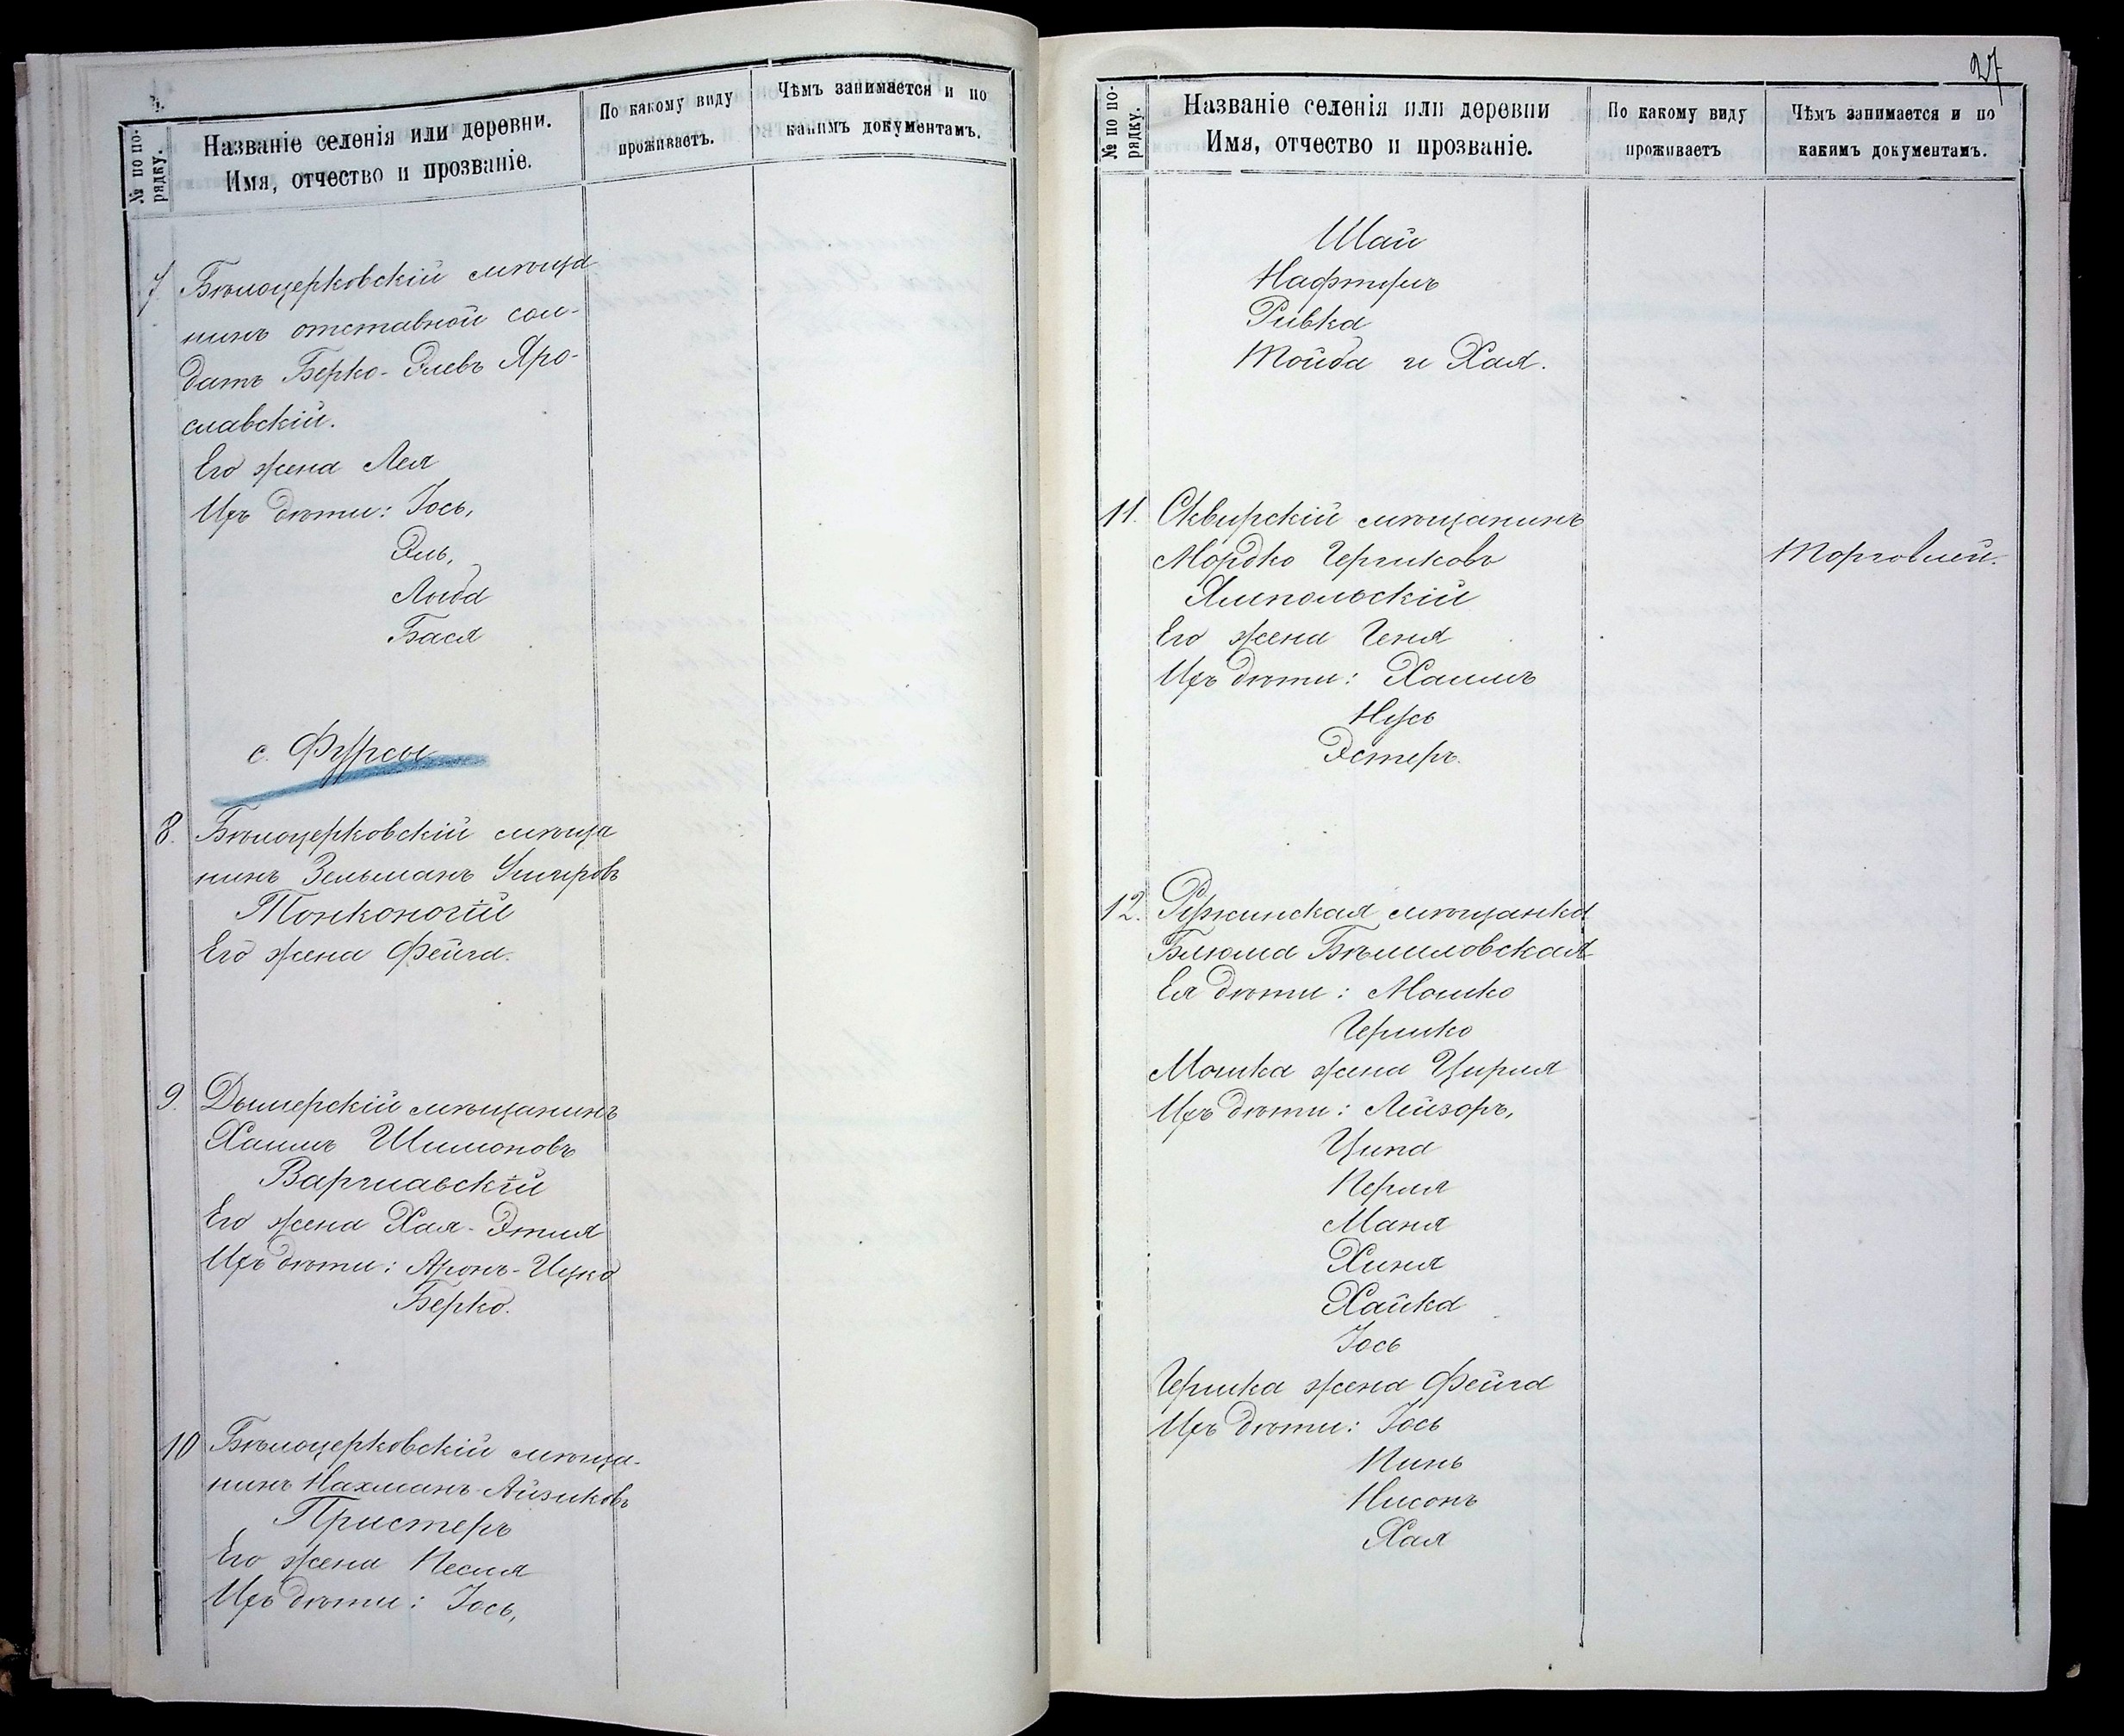 № по по-
рядку.
Названіе селенія или деревни.
Имя, отчество и прозваніе.
По какому виду
проживаетъ.
Чѣмъ занимается и по
какимъ документамъ.
7 Бѣлоцерковскій мѣща
нинъ отставной сол-
датъ Берко-Элевъ Яро-
славскій.
Его жена Лея
Ихъ дѣти: Іось,
Эль,
Люба
Бася
с. Фурсы
8. Бѣлоцерковскій мѣща
нинъ Зельманъ Ушеровъ
Тонконогій
Его жена Фейга.
9. Дымерскій мѣщанинъ
Хаимъ Шимоновъ
Варшавскій
Его жена Хая-Этля
Ихъ дѣти: Аронъ-Ицко
Берко.
10 Бѣлоцерковскій мѣща-
нинъ Нахманъ-Айзиковъ
Пристеръ
Его жена Песля
Ихъ дѣти: Іось,
27
№ по по-
рядку.
Названіе селенія или деревни
Имя, отчество и прозваніе.
По какому виду
проживаетъ
Чѣмъ занимается и по
какимъ документамъ.
Шая
Нафтулъ
Ривка
Тойба и Хая.
11. Сквирскій мѣщанинъ
Мордко Гершковъ
Ямпольскій
Торговлей.
Его жена Геня
Ихъ дѣти: Хаимъ
Нусь
Эстеръ.
12. Ружинская мѣщанка
Блюма Бѣлиловская
Ея дѣти: Мошко
Гершко
Мошка жена Цирля
Ихъ дѣти: Лейзоръ,
Ципа
Перля
Маня
Хиня
Хайка
Іось
Гершка жена Фейга
Ихъ дѣти: Іось
Пинь
Нисонъ
Хая